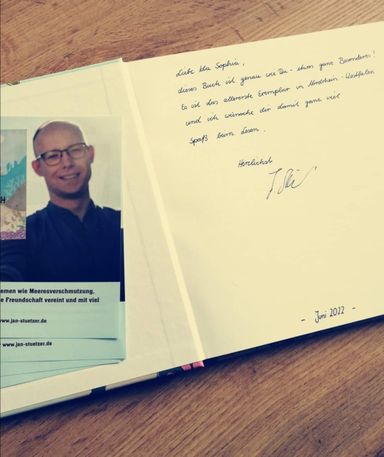 Liebe Ida Sophia,
dieses Buch ist genau wie Du - etwas ganz Besonderes!
Es ist das allererste Exemplar in Nordrhein-Westfalen
und ich wünsche dir damit ganz viel
Spaß beim Lesen.
Herzlichst
- Juni 2022 -
H
emen wie Meeresverschmutzung.
e Freundschaft vereint und mit viel
www.jan-stuetzer.de
www.jan-stuetzer.de